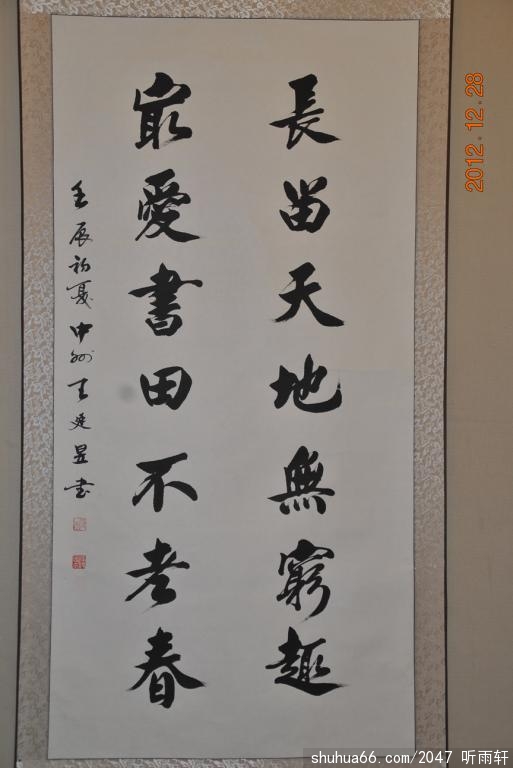 長留天地無窮趣
最愛書田不老春
壬辰初夏中州王延昱书
2012.12.28
shuhua66.com/2047 听雨轩